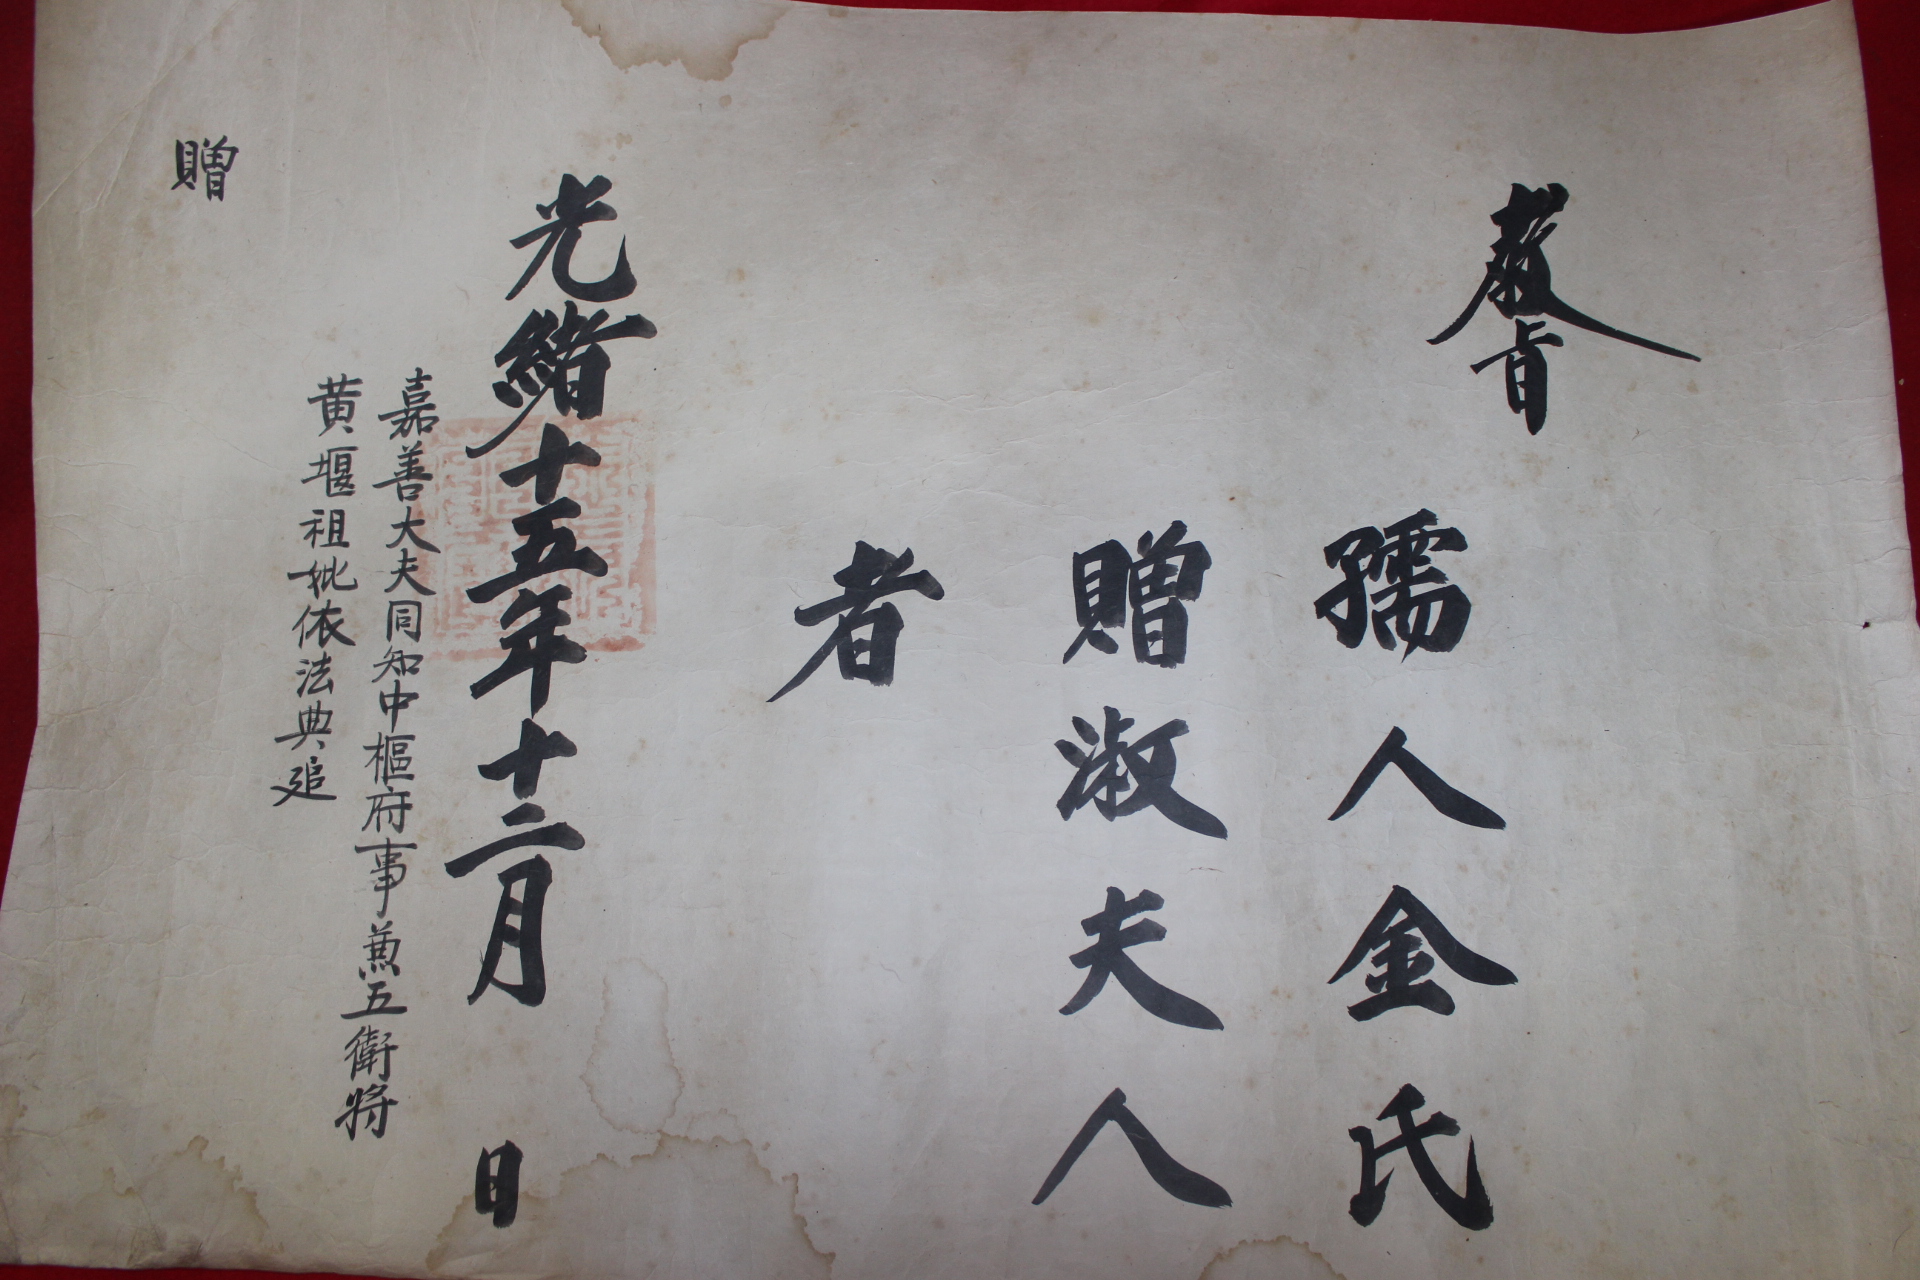 敎旨
孺人金氏
贈淑夫人
者
光緖十五年十二月 日
嘉善大夫同知中樞府事兼五衛將
黃堰祖妣依法典追
贈